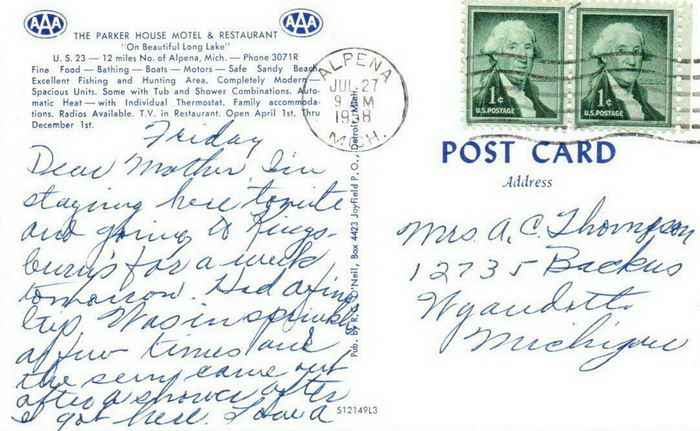 AAA
AAA
THE PARKER HOUSE MOTEL & RESTAURANT
"On Beautiful Long Lake"
U. S. 23 — 12 miles No. of Alpena, Mich. — Phone 3071R
Fine Food — Bathing — Boats — Motors — Safe Sandy Beach
Excellent Fishing and Hunting Area, Completely Modern —
Spacious Units. Some with Tub and Shower Combinations. Auto-
matic Heat — with Individual Thermostat. Family accommoda-
tions. Radios Available. T.V. in Restaurant. Open April 1st, Thru
December 1st.
Friday
Dear Mother, I'm
staying here tonite
and going to Kings-
bury's for a week
tomorrow. Had a fine
trip. Was in sprinkles
a few times and
the sun came out
after a shower after
I got here. Love
S12149L3
Pub. by R. O'Neil, Box 4423 Joyfield P. O., Detroit, Mich.
ALPENA
JUL 27
9 M
MICH.
1¢
U.S. POSTAGE
1¢
U.S. POSTAGE
POST CARD
Address
Mrs. A. C. Thompson
12735 Backus
Wyandotte
Michigan